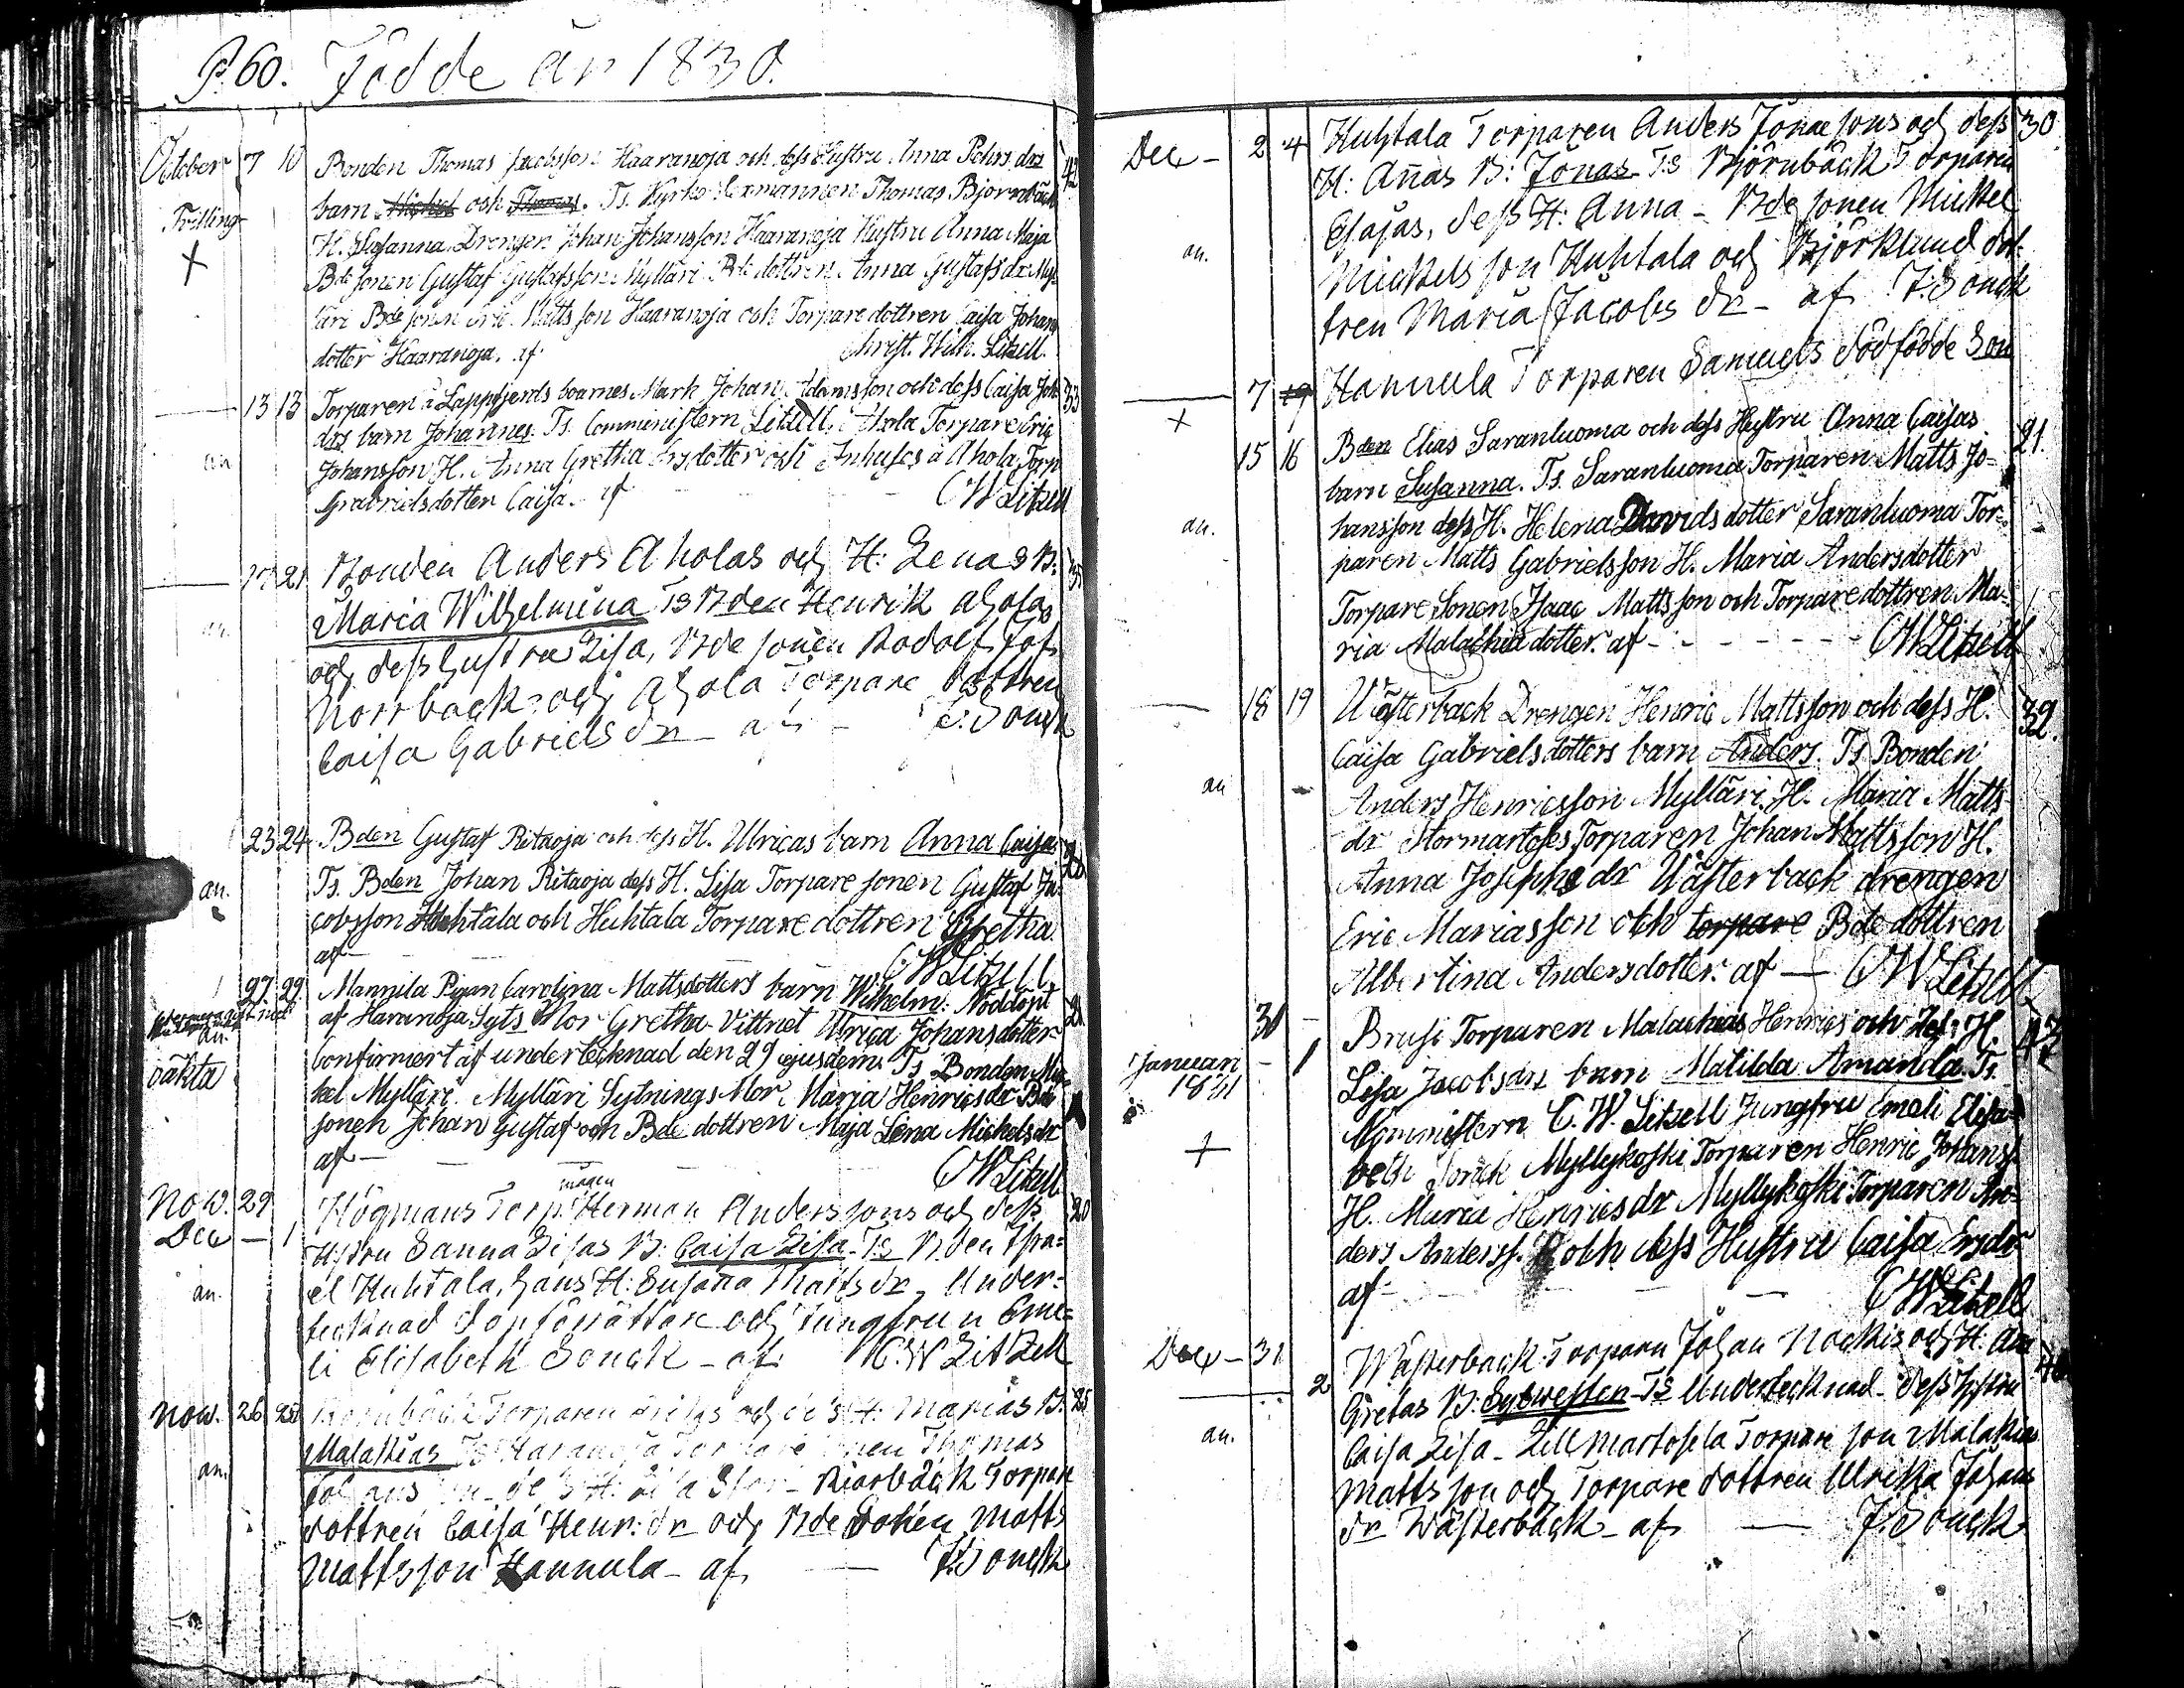 P. 60. Födde år 1830.
October 7 10 Bonden Thomas Jacobsson Haaranoja och dess Hustru Anna Pehrs drs 42
Tvilling barn Michel och Thomas. Ts. Kyrko Thomas Björnbäck
+ H. Susanna, Drengen Johan Johansson Haaranoja Hustru Anna Maja
Bde sonen Gustaf Gustafsson Mylläri Bde dottren Anna Gustafs dr Myl-
läri Bde sonen Eric Matts son Haaranoja och Torpare dottren Caisa Johans
dotter Haaranoja. af Christ. Wilh. Litzell.
13 13 Torparen å Lappfjerds boarnes Mark Johan Adamsson och dess Caisa Joh. 33
drs barn Johannes. Ts. Comministern Litzell, Ahola Torpare Eric
an Johansson H. Anna Gretha Ersdotter och Inhyses å Ahola Torp
Gabrielsdotter Caisa. af CW Litzell
17 21 Bonden Anders Aholas och H: Lenas B: 35
an. Maria Wilhelmina Ts Bden Henrik Ahola
och dess hustru Lisa, Bde sonen Rodolf Jos.
Norrback och Ahola Torpare dottren
Caisa Gabriels dr af J. Sonck
23 24 Bden Gustaf Ritaoja och dess H. Ulricas barn Anna Caisa
an. Ts. Bden Johan Ritaoja dess H. Lisa Torpare sonen Gustaf Ja-
cobsson Huhtala och Huhtala Torpare dottren Gretha.
af CW Litzell
27 29 Mannila Pigan Carolina Mattsdotters barn Wilhelm. Nöddöpt
an. af Haranoja Syts Mor Gretha. Vittnet Ulrica Johansdotter
oäkta Confirmert af undertecknad den 29 ejusdem. Ts Bonden Mic-
kel Mylläri. Mylläri Sytnings Mor Marja Henrics dr Bde
sonen Johan Gustaf och Bde dottren Maja Lena Michels dr
af CW Litzell
Now. 29 Högmans Torp. mågen Herman Anderssons och dess 20
Dec — 1 Hustru Sanna Lisas B: Caisa Lisa. Ts Bden Isra-
an. el Huhtala, hans H: Susana Matts dr, Under-
tecknad Dopförrättare och Jungfrun Eme-
li Elisabeth Sonck — af C.W Litzell
Now. 26 28 Björnbäck Torparen och dess H: Marias B. 25
an. Malakias Ts Haranoja Torpare sonen Thomas
Johans son Torpare
dottren Caisa Henr: dr och Bde Sonen Matts
Mattsson Hannula — af J. Sonck
Dec — 2 4 Huhtala Torparen Anders Jonae sons och dess 30
H: Annas B: Jonas Ts Björnbäck Torparen
an. Esajas, dess H: Anna — Bde sonen Mickel
Mickels son Huhtala och Björklund dot-
tren Maria Jacobs dr — af J. Sonck
7 Hannula Torparen Samuels dödfödde Son
+
15 16 Bden Elias Saranluoma och dess Hustru Anna Caisas 21.
barn Susanna. Ts. Saranluoma Torparen Matts Jo-
an. hansson dess H. Helena Davidsdotter Saranluoma Tor-
paren Matts Gabrielsson H. Maria Andersdotter
Torpare Sonen Isaac Mattsson och Torpare dottren Ma-
ria Malachia dotter. af CW Litzell
18 19 Wästerback Drengen Henric Mattsson och dess H. 32.
Caisa Gabrielsdotters barn Anders. Ts Bonden
an Anders Henricsson Mylläri. H. Maria Matts
dr Stormartoses Torparen Johan Mattsson H.
Anna Josephs dr Wästerback drengen
Eric Mariasson och torpare Bde dottren
Albertina Andersdotter. af — CW Litzell
30 — Brusi Torparen Malachias Henrics och dess H. 43
Januari — 1 Lisa Jacobsdrs barn Matilda Amanda. Ts.
1831 Comministern C. W. Litzell Jungfru Emeli Elisa-
+ beth Sonck Myllykoski Torparen Henric Johanss.
H. Maria Henrics dr Myllykoski Torparen An-
ders Anderss. och dess Hustru Caisa Ersdr
af CW Litzell
Dec — 31 Wästerback Torparn Johan Nockis och H: Ana 40
2 Gretas B: Sylwester Ts Undertecknad dess hustru
an. Caisa Lisa — Lillmartosela Torpare son Malakias
Mattsson och Torpare dottren Ulrika Johans
dr Wästerback — af — J. Sonck